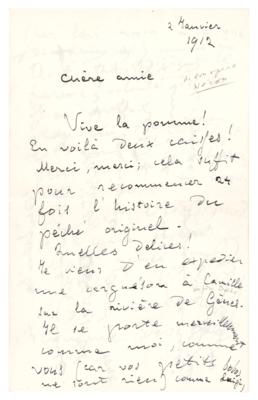 2 Janvier
1912
Chère amie
Vive la pomme!
En voilà deux caisses!
Merci, merci; cela suffit
pour recommencer 24
fois l'histoire du
péché originel.
Quelles délices!
Je viens d'en expedier
une à Camille
sur la rivière de Gênes.
Il se porte merveilleusement
comme moi, comme
vous (car vos petits bobos
ne sont rien) comme